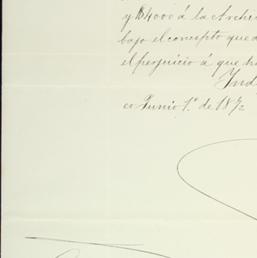 y $4000 á la Archi
bajo el concepto que a
el perjuicio á que ha
Ind
co Junio 1.º de 1872